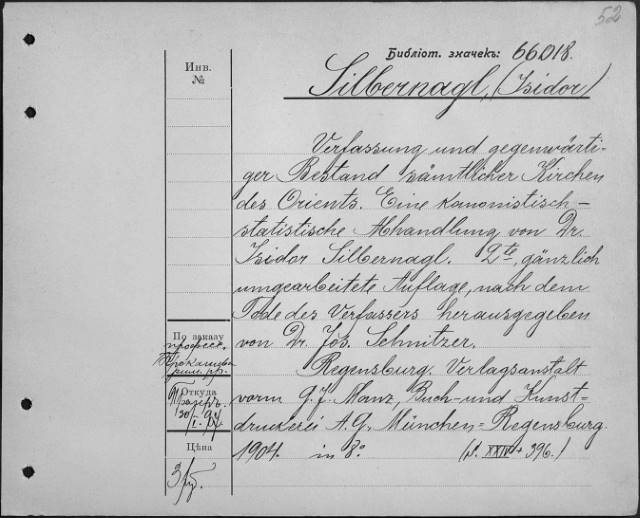 52
Библіот. значекъ: 66.018.
Silbernagl, (Isidor)
Инв.
№
Verfassung und gegenwärti-
ger Bestand sämtlicher Kirchen
des Orients. Eine kanonistisch-
statistische Abhandlung von Dr.
Isidor Silbernagl. 2te, gänzlich
umgearbeitete Auflage, nach dem
Tode des Verfassers herausgegeben
von Dr. Jos. Schnitzer.
Regensburg. Verlagsanstalt
vorm G. J. Manz, Buch- und Kunst-
druckerei A. G. München-Regensburg.
1904. in 8º (S. XXIV+396.)
По заказу
професс.
Откуда
Цѣна
3 руб.